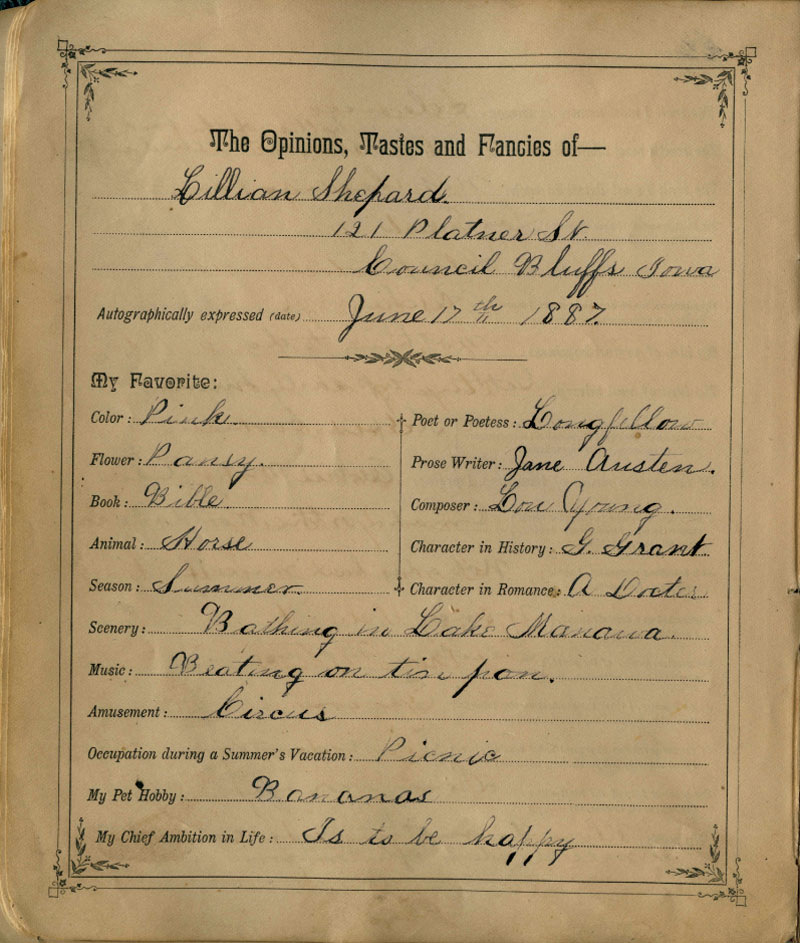 The Opinions, Tastes and Fancies of—
Lillian Shepard.
121 Platner St.
Council Bluffs Iowa
Autographically expressed (date) June 17th 1887.
My Favorite:
Color: Pink.
Flower: Pansy.
Book: Bible.
Animal: Horse
Season: Summer.
Poet or Poetess: Longfellow
Prose Writer: Jane Austen.
Composer: Lou Young.
Character in History: G. Grant
Character in Romance: A Docter
Scenery: Bathing in Lake Manawa.
Music: Beating on tin pan.
Amusement: Circus
Occupation during a Summer's Vacation: Picnic
My Pet Hobby: Bananas
My Chief Ambition in Life: Is to be happy